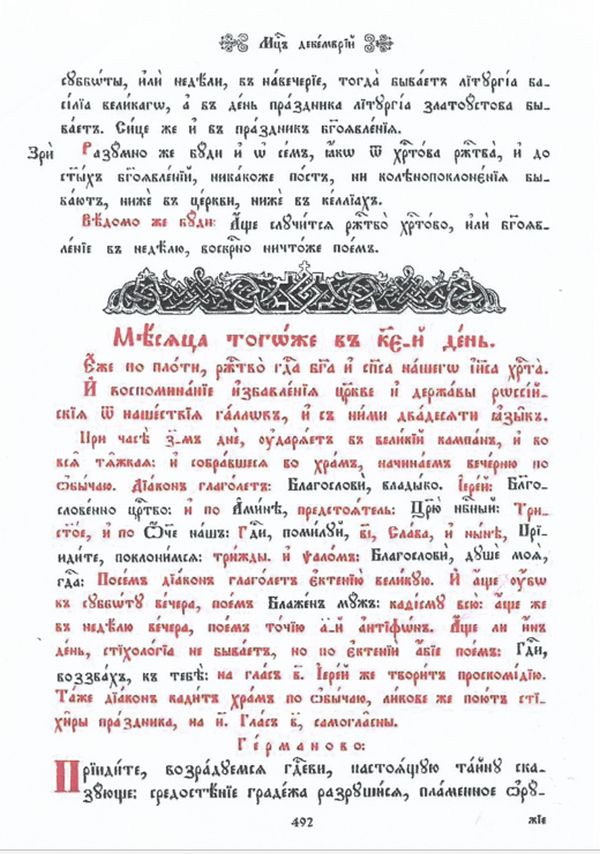 Мцⷭ҇ъ деке́мврїй
сꙋббѡ́ты, и҆лѝ недѣ́ли, въ наве́черїе, тогда̀ быва́етъ лїтꙋргі́а ва-
сі́лїа вели́кагѡ, а҆ въ де́нь пра́здника лїтꙋргі́а златоꙋ́стова бы-
ва́етъ. Си́це же и҆ въ пра́здникъ бг҃оѧвле́нїѧ.
Зрѝ Разꙋ́мно же бꙋ́ди и҆ ѡ҆ се́мъ, ꙗ҆́кѡ ѿ хрⷭ҇то́ва ржⷭ҇тва̀, и҆ до
ст҃ы́хъ бг҃оѧвле́нїй, ника́коже по́стъ, ни колѣнопоклоне́нїѧ бы-
ва́ютъ, нижѐ въ це́ркви, нижѐ въ ке́ллїахъ.
Вѣ́домо же бꙋ́ди: А҆́ще слꙋчи́тсѧ ржⷭ҇тво̀ хрⷭ҇то́во, и҆лѝ бг҃оѧв-
ле́нїе въ недѣ́лю, воскрⷭ҇но ничто́же пое́мъ.
Мѣ́сѧца тогѡ́же въ к҃е-й де́нь.
Є҆́же по пло́ти, ржⷭ҇тво̀ гдⷭ҇а бг҃а и҆ сп҃са на́шегѡ і҆и҃са хрⷭ҇та̀.
И҆ воспомина́нїе и҆збавле́нїѧ цр҃кве и҆ держа́вы рѡссі́й-
скїѧ ѿ наше́ствїѧ га́ллѡвъ, и҆ съ ни́ми два́десѧти ꙗ҆зы̑къ.
При часѣ̀ з҃-мъ днѐ, ᲂу҆дарѧ́етъ въ вели́кїй кампа́нъ, и҆ во
всѧ̑ тѧ̑жкаѧ: и҆ собра́вшесѧ во хра́мъ, начина́емъ вече́рню по
ѡ҆бы́чаю. Дїа́конъ глаго́летъ: Благословѝ, влады́ко. І҆ере́й: Бл҃го-
слове́нно црⷭ҇тво: и҆ по А҆ми́нѣ, предстоѧ́тель: Цр҃ю̀ нбⷭ҇ный: Три-
ст҃о́е, и҆ по Ѻ҆́ч҃е на́шъ: Гдⷭ҇и, поми́лꙋй, в҃і, Сла́ва, и҆ ны́нѣ, Прї-
иди́те, поклони́мсѧ: три́жды. и҆ ѱало́мъ: Благословѝ, дꙋшѐ моѧ̀,
гдⷭ҇а: Посе́мъ дїа́конъ глаго́летъ є҆ктенїю̀ вели́кꙋю. И҆ а҆́ще ᲂу҆́бѡ
къ сꙋббѡ́тꙋ ве́чера, пое́мъ Блаже́нъ мꙋ́жъ: каді́смꙋ всю̀: а҆́ще же
въ недѣ́лю ве́чера, пое́мъ то́чїю а҃-й а҆нтїфѡ́нъ. А҆́ще ли и҆́нъ
де́нь, стїхоло́гїа не быва́етъ, но по є҆ктенїѝ а҆́бїе пое́мъ: Гдⷭ҇и,
воззва́хъ, къ тебѣ̀: на гла́съ в҃. І҆ере́й же твори́тъ проскомі́дїю.
Та́же дїа́конъ кади́тъ хра́мъ по ѡ҆бы́чаю, ли́кове же пою́тъ стї-
хи̑ры пра́здника, на и҃. Гла́съ в҃, самогла̑сны.
Ге́рманово:
Прїиди́те, возра́дꙋемсѧ гдⷭ҇еви, настоѧ́щꙋю та́йнꙋ ска-
зꙋ́юще: средостѣ́нїе градежа̀ разрꙋши́сѧ, пла́менное ѻ҆рꙋ́-
492 жїе